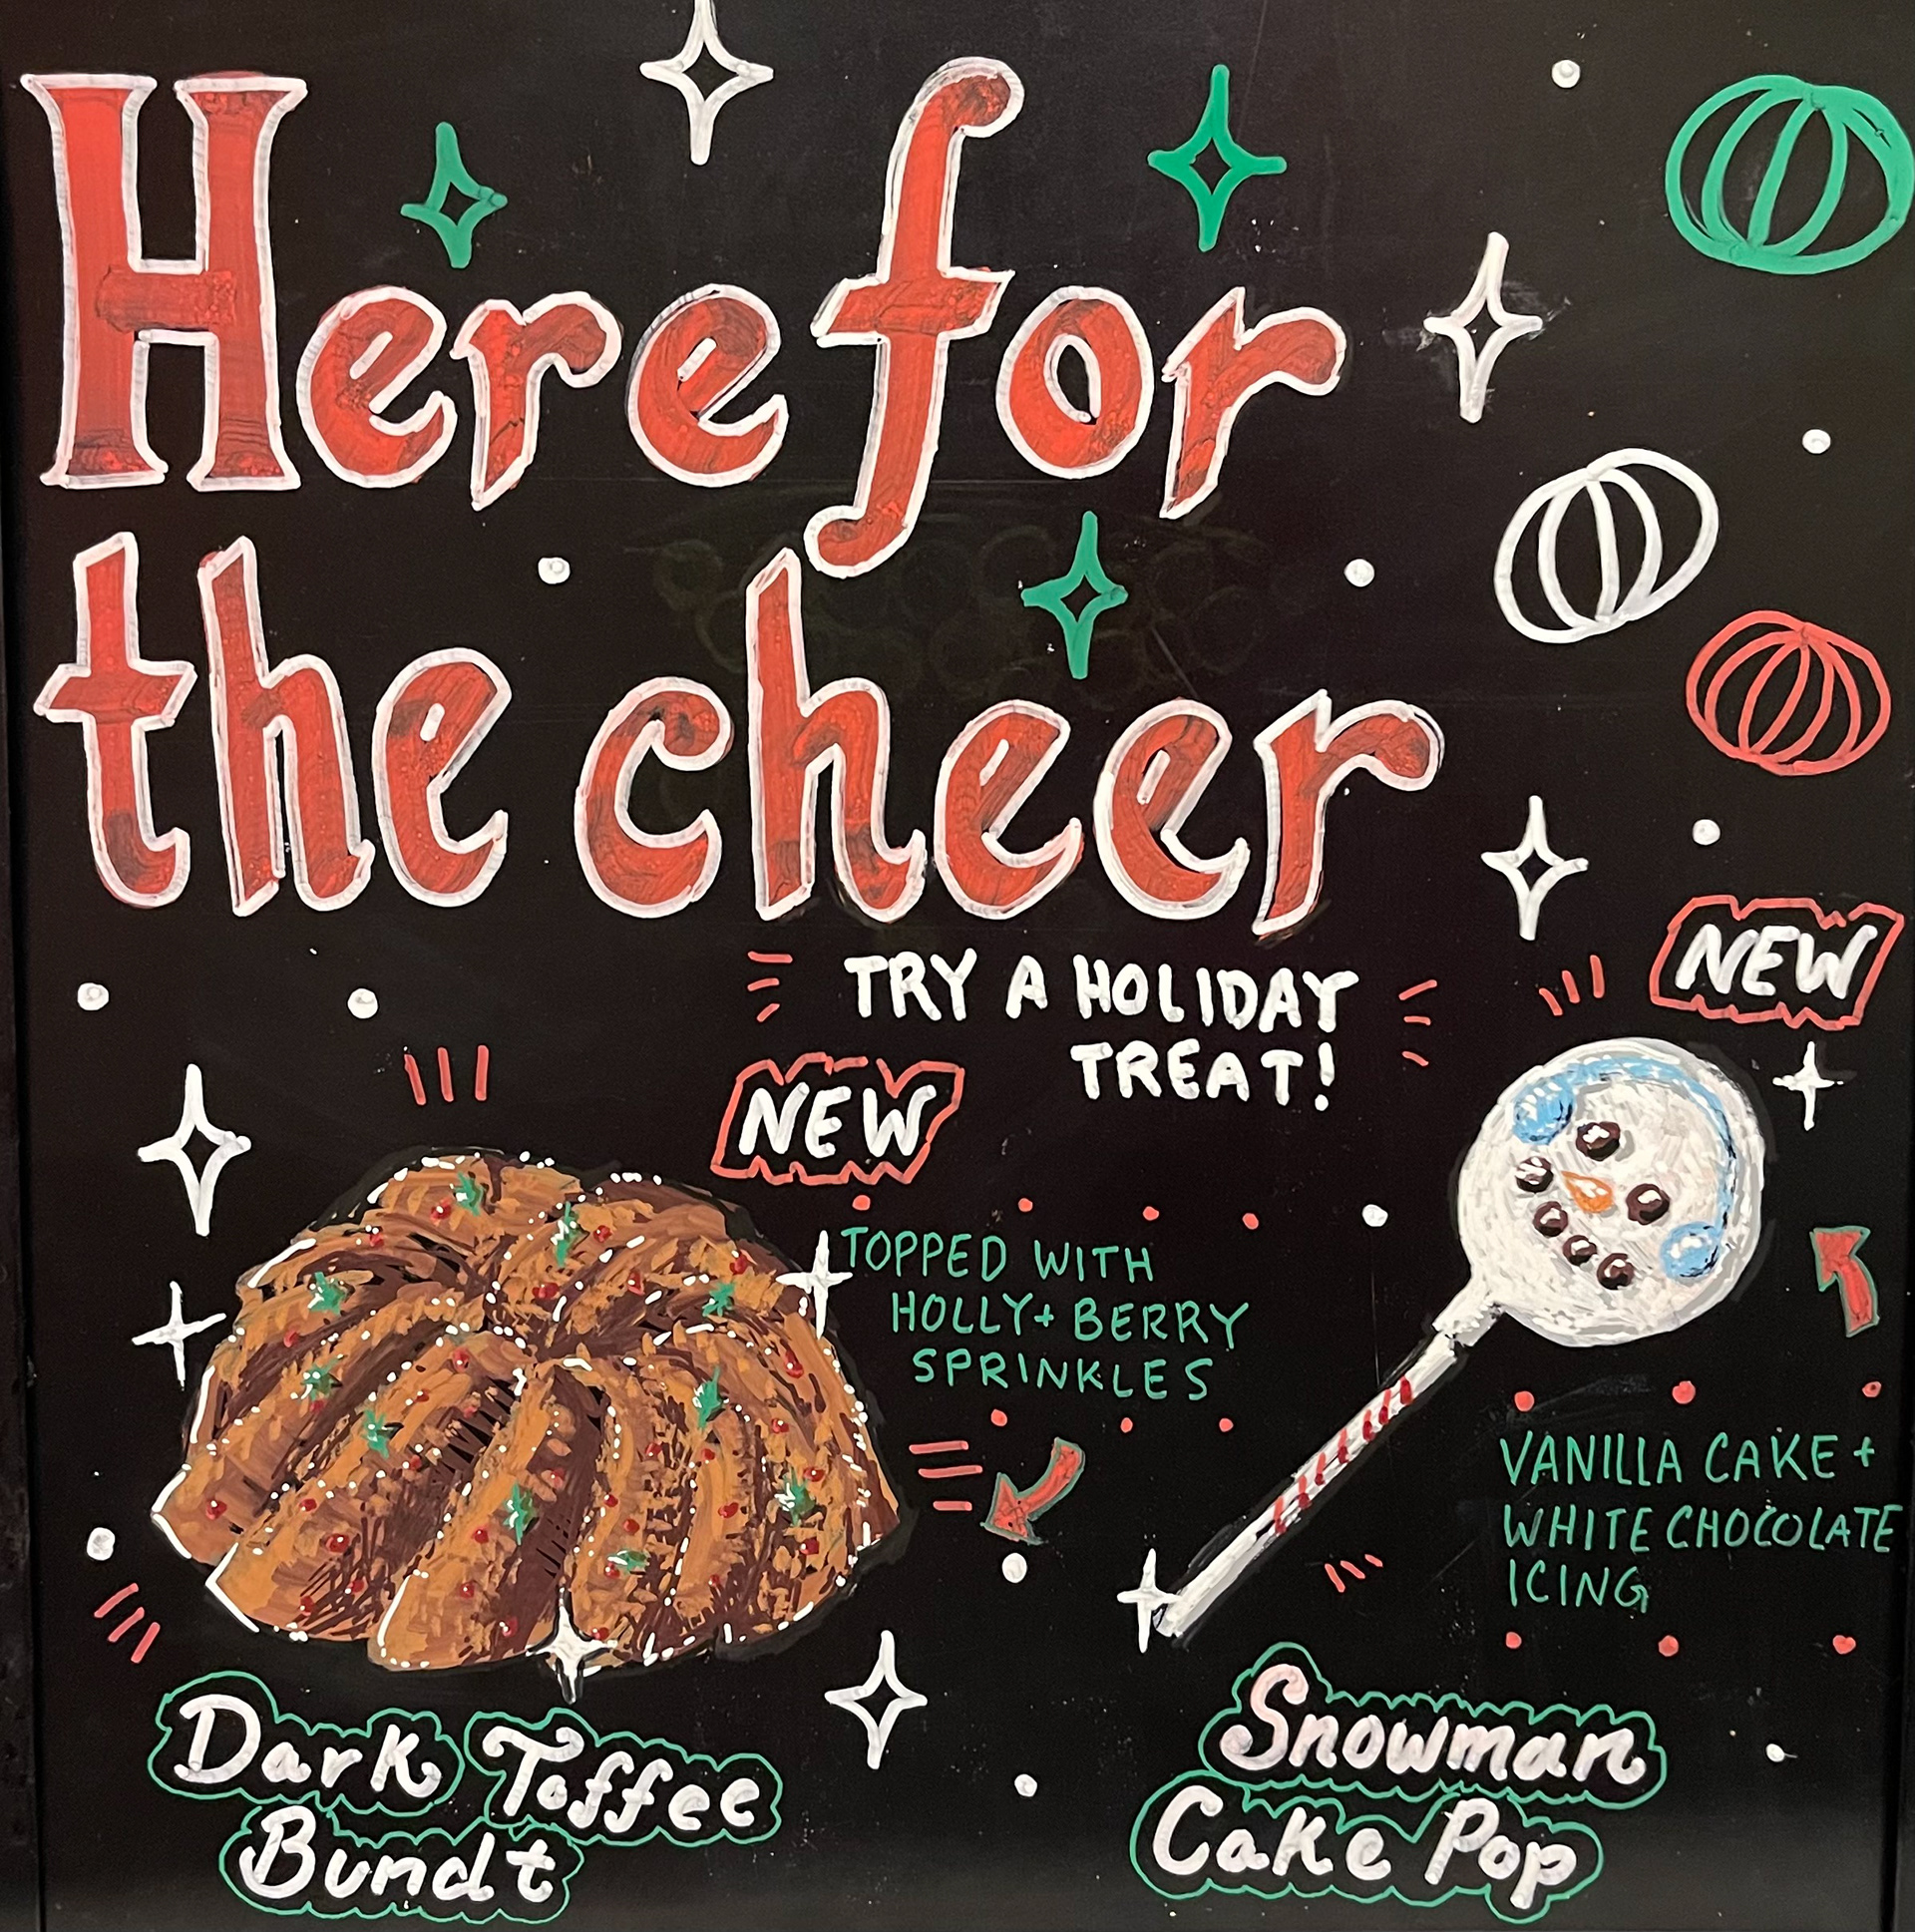 Here for
the cheer
TRY A HOLIDAY
TREAT!
NEW
TOPPED WITH
HOLLY + BERRY
SPRINKLES
Dark Toffee
Bundt
NEW
VANILLA CAKE +
WHITE CHOCOLATE
ICING
Snowman
Cake Pop